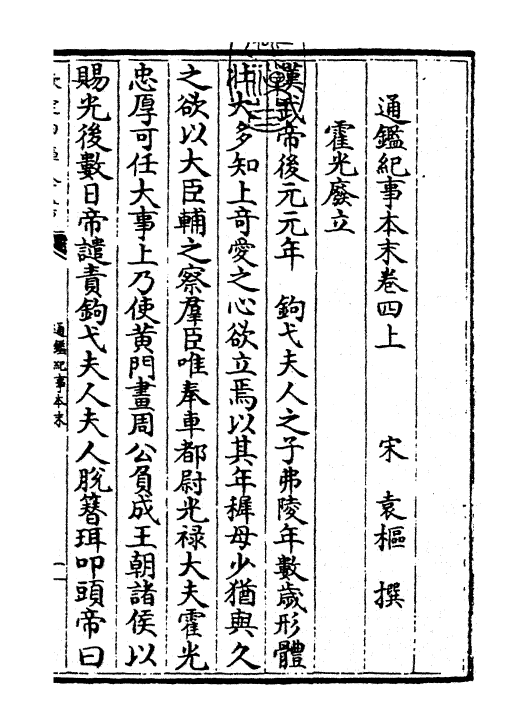 通鑑紀事本末卷四上　宋　袁樞　撰
霍光廢立
漢武帝後元元年　鉤弋夫人之子弗陵年數歲形體
壯大多知上奇愛之心欲立焉以其年穉母少猶與久
之欲以大臣輔之察羣臣唯奉車都尉光禄大夫霍光
忠厚可任大事上乃使黄門畫周公負成王朝諸侯以
賜光後數日帝譴責鉤弋夫人夫人脫簪珥叩頭帝曰
通鑑紀事本末